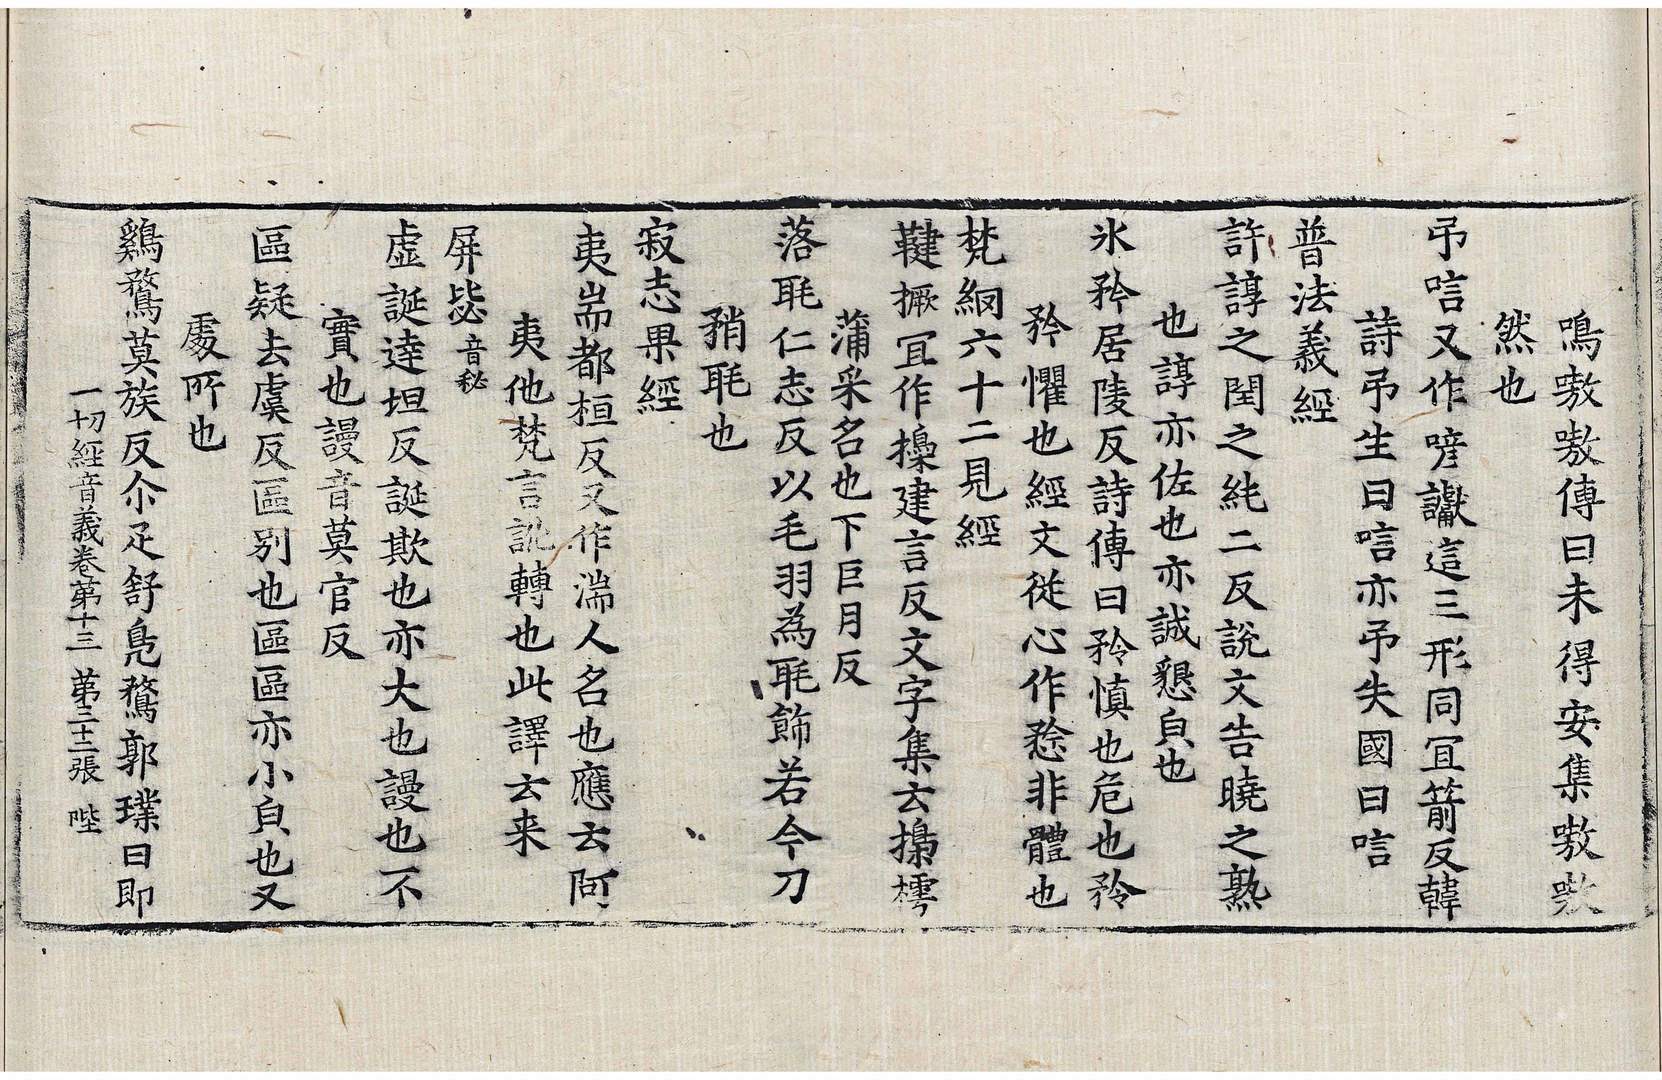 鳴嗷嗷傳曰未得安集嗷嗷
然也
弔唁又作喭讞這三形同冝箭反韓
詩弔生曰唁亦弔失國曰唁
普法義經
許諄之閏之純二反說文告曉之熟
也諄亦佐也亦誠懇皃也
氷矜居陵反詩傳曰矜慎也危也矜
矜懼也經文從心作惍非體也
梵網六十二見經
鞬撅冝作揵建言反文字集云摷樗
蒲采名也下巨月反
落毦仁志反以毛羽為毦飾若今刀
矟毦也
寂志果經
夷耑都桓反又作湍人名也應云阿
夷他梵言訛轉也此譯云来
屏毖音秘
虛誕達坦反誕欺也亦大也謾也不
實也謾音莫官反
區疑去虞反區別也區區亦小皃也又
處所也
鷄鶩莫族反尒疋舒鳬鶩郭璞曰即
一切經音義卷第十三 第三十二張 陛